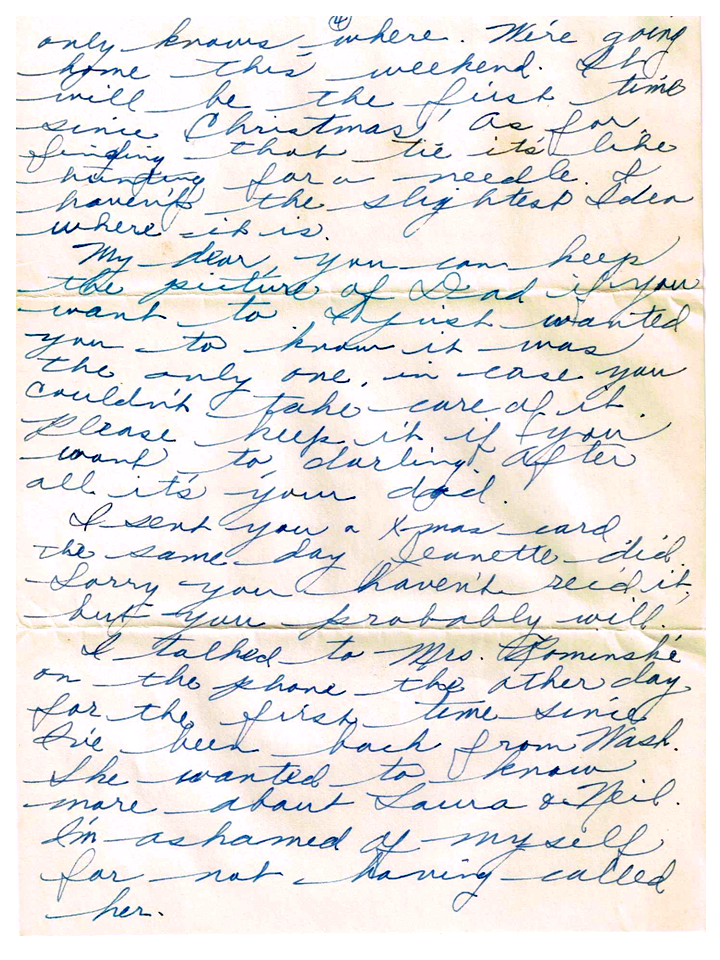 4
only knows where. We're going
home this weekend. It
will be the first time
since Christmas! As for
finding that tie it's like
hunting for a needle. I
haven't the slightest Idea
where it is.
My dear, you can keep
the picture of Dad if you
want to I just wanted
you to know it was
the only one, in case you
couldn't take care of it.
Please keep it if you
want to, darling, after
all it's your dad.
I sent you a X-mas card
the same day Jeanette did.
Sorry you haven't rec'd it,
but you probably will.
I talked to Mrs. Rominske
on the phone the other day
for the first time since
I've been back from Wash.
She wanted to know
more about Laura & Neil.
I'm ashamed of myself
for not having called
her.